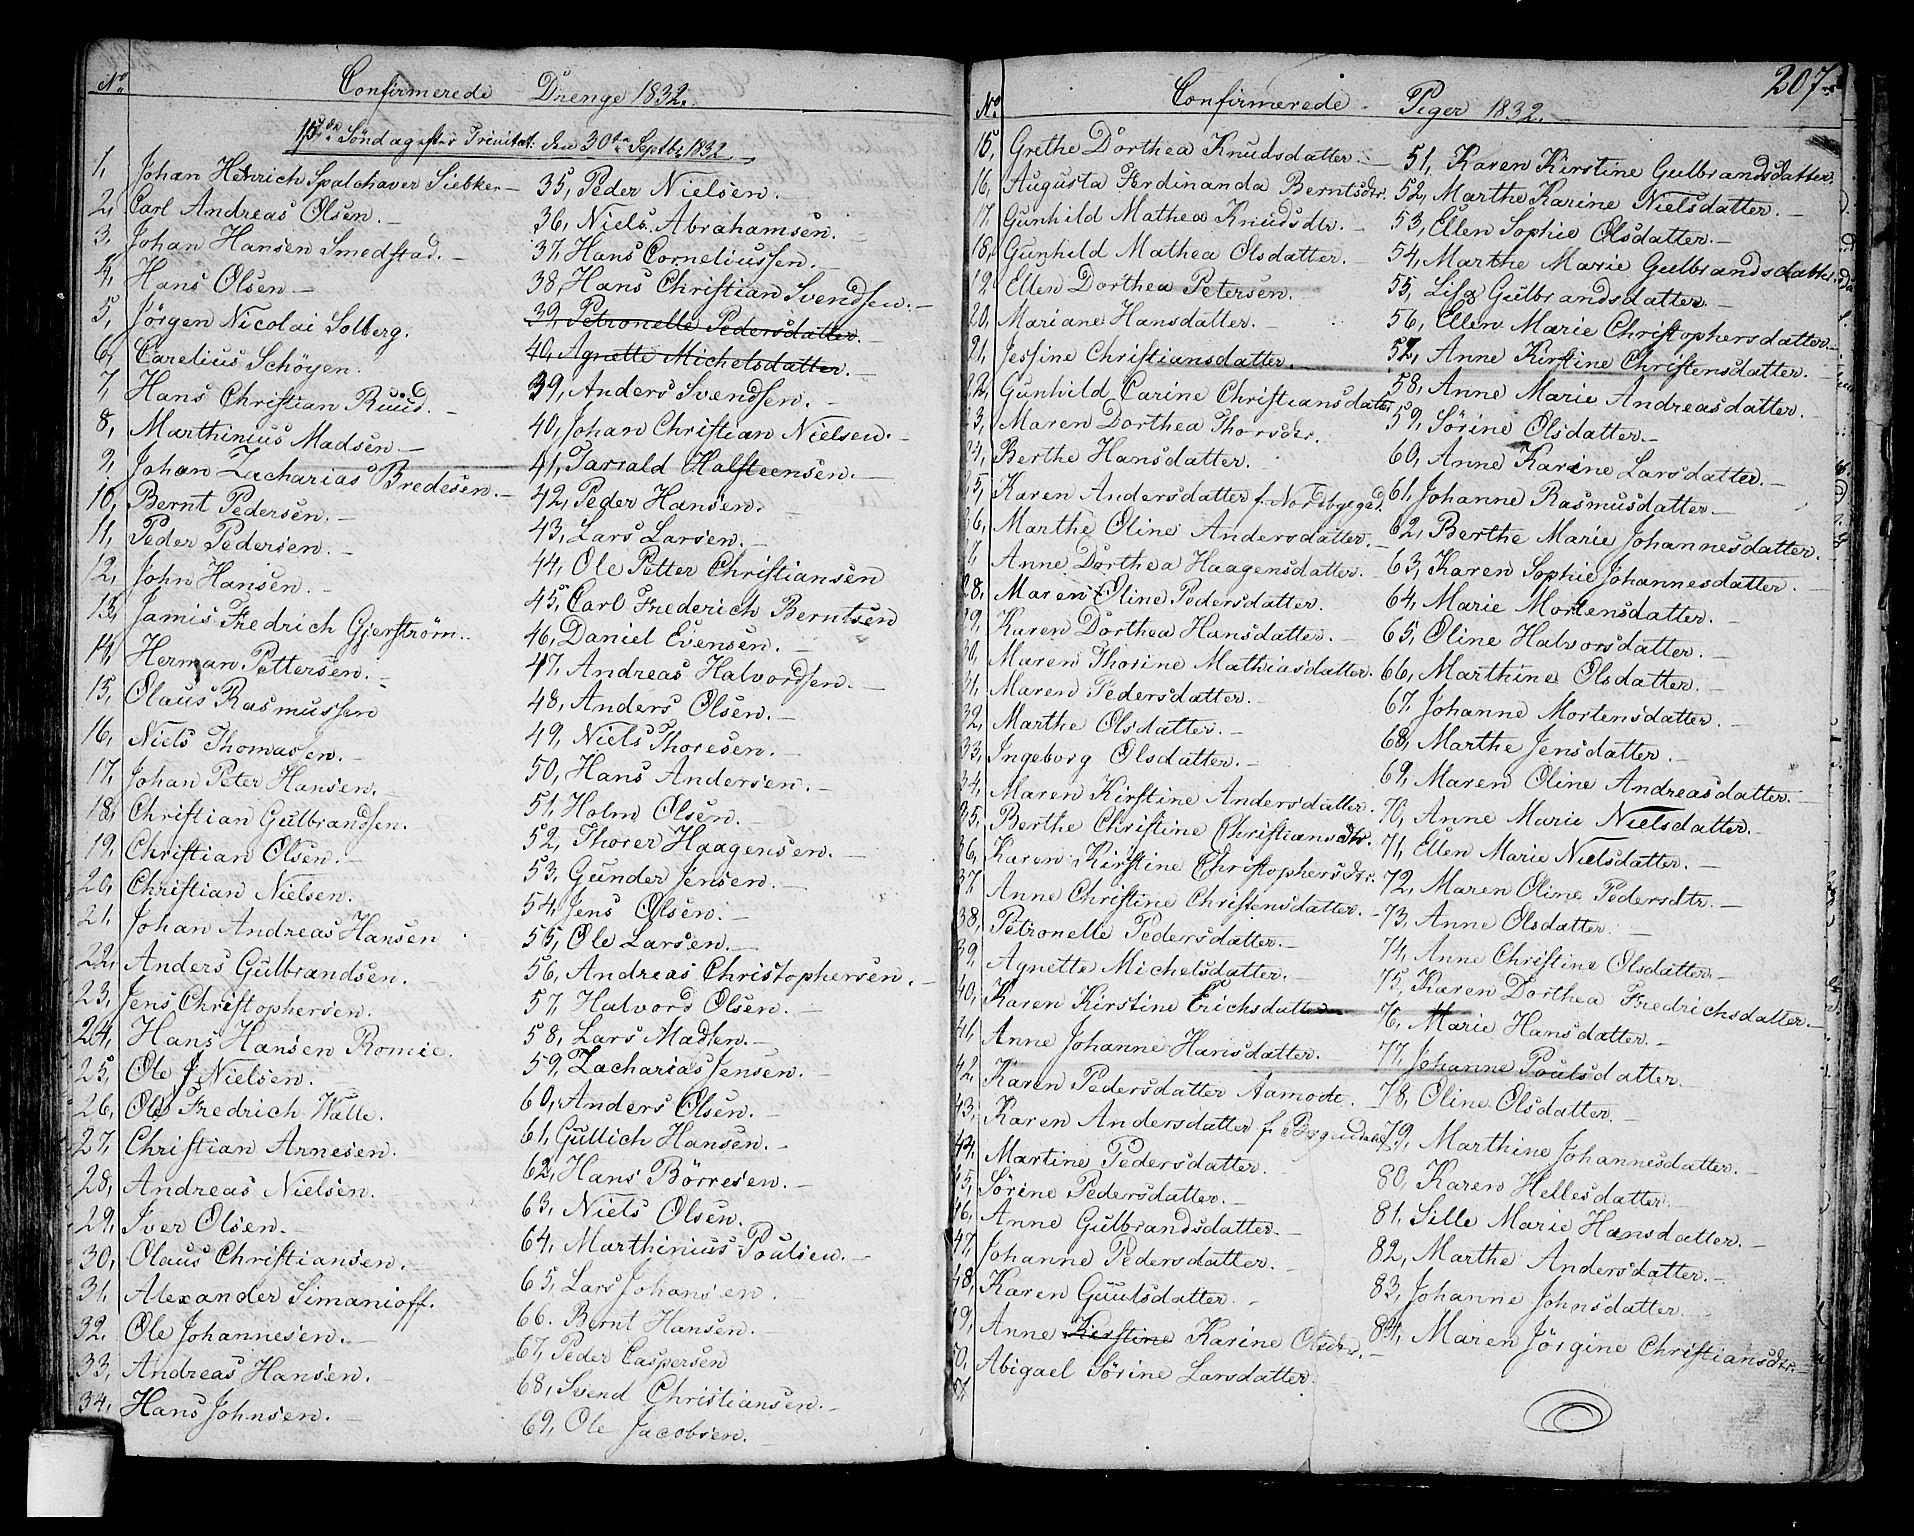 No Confirmerede Drenge 1832.
15de Söndag efter Trinitat: den 30te Septbr 1832
1, Johan Henrich Spalchaver Siebker
2, Carl Andreas Olsen.
3, Johan Hansen Smedstad.
4, Hans Olsen
5, Jörgen Nicolai Solberg.
6, Carelius Schöyen.
7, Hans Christian Ruud.
8, Marthinius Madsen
9, Johan Zacharias Bredesen.
10, Bernt Pedersen.
11, Peder Pedersen.
12, John Hansen.
13, Jamis Fredrich Gjerström.
14, Herman Pettersen.
15, Olaus Rasmussen
16, Niels Thomassen.
17, Johan Peter Hansen.
18, Christian Gulbrandsen.
19, Christian Olsen.
20, Christian Nielsen.
21, Johan Andreas Hansen
22, Anders Gulbrandsen.
23, Jens Christophersen.
24, Hans Hansen Romie.
25, Ole J Nielsen.
26, Ole Fredrich Walle.
27, Christian Arnesen.
28, Andreas Nielsen.
29, Iver Olsen.
30, Olaus Christiansen.
31, Alexander Simanioff.
32, Ole Johannesen.
33, Andreas Hansen.
34, Hans Johnsen.
35, Peder Nielsen.
36, Niels Abrahamsen.
37, Hans Corneliussen.
38 Hans Christian Svendsen.
39, Petronelle Pedersdatter.
40, Agnette Michelsdatter.
39, Anders Svendsen.
40, Johan Christian Nielsen.
41, Tarrald Halsteensen.
42, Peder Hansen.
43, Lars Larsen.
44, Ole Petter Christiansen
45, Carl Frederich Berntsen
46, Daniel Evensen.
47, Andreas Halvordsen.
48, Anders Olsen.
49, Niels Thoresen.
50, Hans Andersen.
51, Holm Olsen.
52, Thorer Haagensen.
53, Gunder Jensen.
54, Jens Olsen.
55, Ole Larsen.
56, Andreas Christophersen.
57, Halvord Olsen.
58, Lars Madsen.
59, Zacharias Jensen.
60, Anders Olsen.
61, Gullich Hansen.
62, Hans Börresen.
63, Niels Olsen.
64, Marthinius Poulsen.
65, Lars Johansen.
66. Bernt Hansen.
67, Peder Caspersen
68, Svend Christiansen.
69, Ole Jacobsen.
207
No Confirmerede Piger 1832.
15, Grethe Dorthea Knudsdatter.
16, Augusta Ferdinanda Berntsdtr.
17. Gunhild Mathea Knudsdtr.
18, Gunhild Mathea Olsdatter.
19. Ellen Dorthea Petersen.
20, Mariane Hansdatter.
21, Jessine Christiansdatter.
22, Gunhild Carine Christiansdatter
3, Maren Dorthea Thorsdtr.
4, Berthe Hansdatter.
5, Karen Andersdatter f. Nordbygegd.
6, Marthe Oline Andersdatter.
7. Anne Dorthea Haagensdatter.
28, Maren Oline Pedersdatter.
29, Karen Dorthea Hansdatter.
30, Maren Thorine Mathiasdatter.
31, Maren Pedersdatter.
32, Marthe Olsdatter.
33, Ingeborg Olsdatter.
34, Maren Kirstine Andersdatter.
35, Berthe Christine Christiansdtr.
36, Karen Kirstine Christophersdtr.
37, Anne Christine Christensdatter.
38, Petronelle Pedersdatter.
39, Agnette Michelsdatter.
40, Karen Kirstine Erichsdatter
41, Anne Johanne Hansdatter.
42, Karen Pedersdatter Aamodt.
43, Karen Andersdatter f.
44, Martine Pedersdatter.
45, Sörine Pedersdatter.
46, Anne Gulbrandsdatter.
47, Johanne Pedersdatter.
48, Karen Guulsdatter.
49, Anne Kirstine Karine Olsdtr.
50, Abigael Sörine Larsdatter.
51
51, Karen Kirstine Gulbrandsdatter.
52, Marthe Karine Nielsdatter.
53, Ellen Sophie Olsdatter.
54, Marthe Marie Gulbrandsdatter
55, Lise Gulbrandsdatter.
56, Ellen Marie Christophersdatter.
57, Anne Kirstine Christensdatter.
58, Anne Marie Andreasdatter.
59, Sörine Olsdatter.
60, Anne Karine Larsdatter.
61, Johanne Rasmusdatter.
62, Berthe Marie Johannesdatter.
63, Karen Sophie Johannesdatter.
64, Marie Mortensdatter.
65, Oline Halvorsdatter.
66, Marthine Olsdatter.
67, Johanne Mortensdatter.
68, Marthe Jensdatter.
69, Maren Oline Andreasdatter.
70, Anne Marie Nielsdatter.
71, Ellen Marie Nielsdatter.
72, Maren Oline Pedersdtr.
73, Anne Olsdatter.
74, Anne Christine Olsdatter.
75, Karen Dorthea Fredrichsdatter.
76, Marie Hansdatter.
77, Johanne Poulsdatter.
78, Oline Olsdatter.
79, Marthine Johannesdatter.
80, Karen Hellesdatter.
81, Sille Marie Hansdatter.
82, Marthe Andersdatter.
83, Johanne Johnsdatter.
84, Maren Jörgine Christiansdtr.